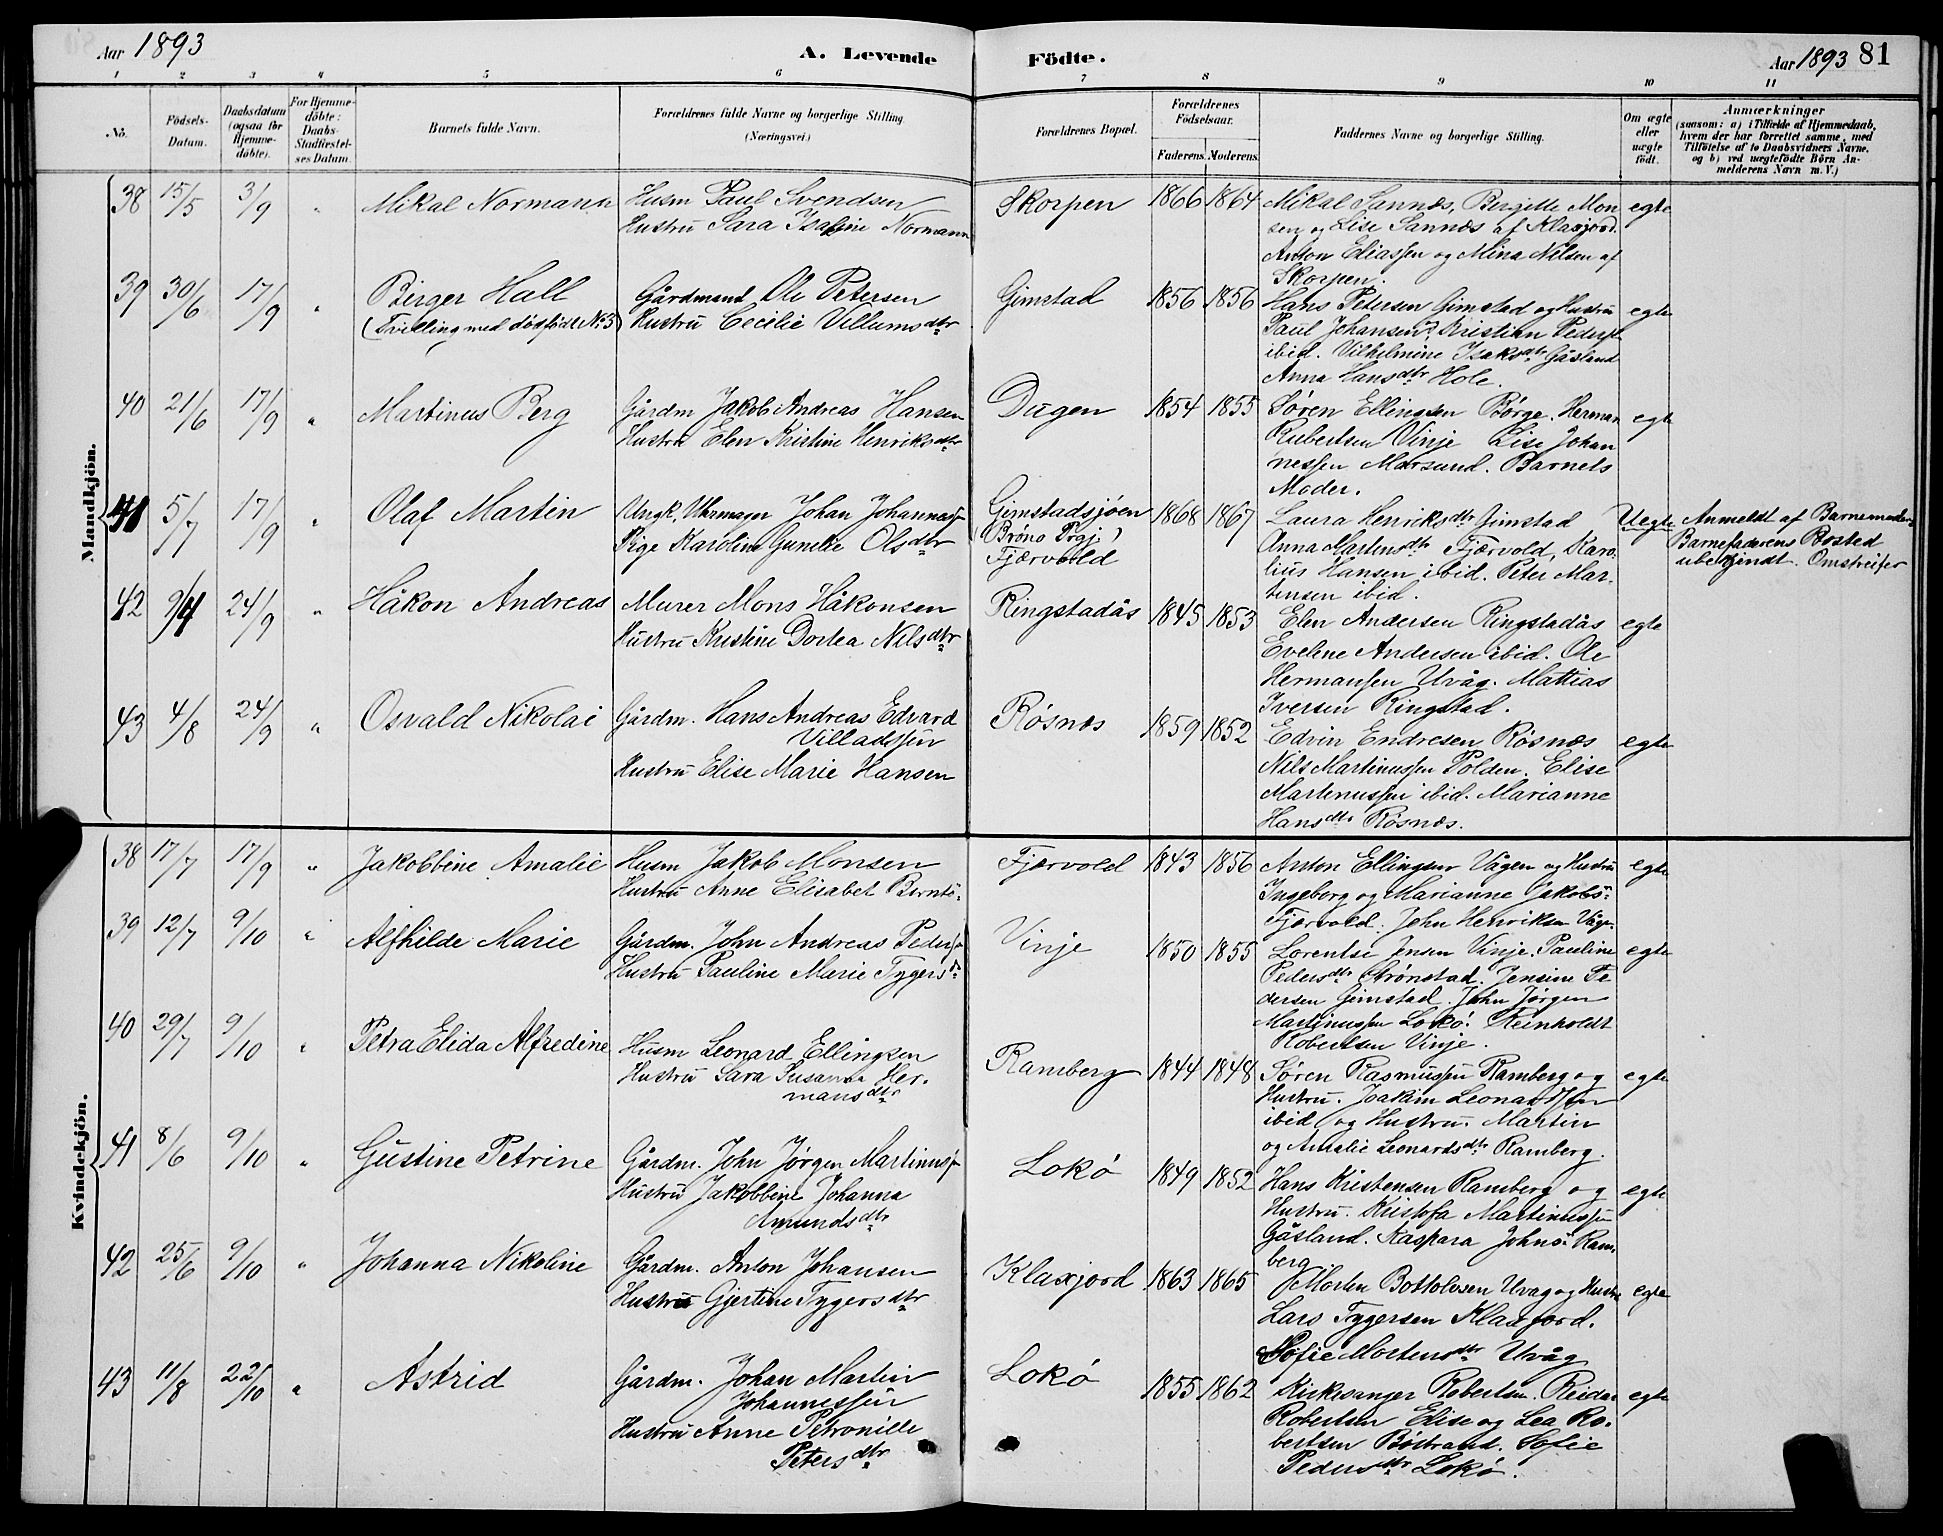 Aar 1893 A. Levende Födte. Aar 1893 81
1 2 3 4 5 6 7 8 9 10 11
No.
Födsels-Datum.
Daabsdatum (ogsaa for Hjemme-döbte).
For Hjemme-döbte: Daabs-Stadfæstel-ses Datum.
Barnets fulde Navn.
Forældrenes fulde Navne og borgerlige Stilling. (Næringsvei.)
Forældrenes Bopæl.
Forældrenes Födselsaar.
Faderens. Moderens.
Faddernes Navne og borgerlige Stilling.
Om ægte eller uægte født.
Anmærkninger
(saasom: a) i Tilfælde af Hjemmedaab, hvem der har forrettet samme, med Tilföielse af to Daabsvidners Navne, og b) ved uægtefödte Börn An-melderens Navn m. V.)
Mandkjön.
38 15/5 3/9 " Mikal Normann
Husm Paul Svendsen
Hustru Sara Isabine Normann
Skorpen 1866 1864
Mikal Sannæs, Bergitte Mon
sen og Lise Sannæs af Klaxjord.
Anton Eliassen og Mina Nilsen af
Skorpen.
egte
39 30/6 17/9 " Birger Hall
(Tvilling med dødfødt No 3)
Gårdmand Ole Petersen
Hustru Cecilie Villumsdtr
Gimstad 1856 1856
Hans Petersen Gimstad og Hustru
Paul Johansen, Kristian Peders.
ibid. Vilhelmine Isaksdtr Gåsland
Anna Hansdtr Hole.
egte
40 21/6 17/9 " Martinus Berg
Gårdm Jakob Andreas Hansen
Hustru Elen Kristine Henriksdtr
Dugen 1854 1855
Søren Ellingsen Børge. Herman
Rubertsen Vinje Lise Johan
nessen Marsund. Barnets
Moder.
egte
41 5/7 17/9 " Olaf Martin
Ungk. Uhrmager Johan Johanness.
Pige Karoline Olsdtr
Gimstadsjøen
(Brønø Prgj)
Fjærvold
1868 1867
Laura Henriksdtr Gimstad
Anna Martensdtr Fjærvold, Karo
lius Hansen ibid. Peter Mar
tensen ibid.
Uegte
Anmeldt af Barnemoder
Barnefaderens Bosted
ubekjendt. Omstreifer
42 9/4 24/9 " Håkon Andreas
Murer Mons Håkonsen
Hustru Kristine Dortea Nilsdtr
Ringstadås 1845 1853
Elen Andersen Ringstadås
Evelene Andersen ibid. Ole
Hermansen Uvåg. Mattias
Iversen Ringstad.
egte
43 4/8 24/9 " Osvald Nikolai
Gårdm. Hans Andreas Edvard
Villadssen
Hustru Elise Marie Hansen
Røsnæs 1859 1852
Edvin Endresen Røsnæs
Nils Martinussen Polden. Elise
Martenussen ibid. Marianne
Hansdtr Røsnæs.
egte
Kvindekjön.
38 17/7 17/9 " Jakobbine Amalie
Husm Jakob Monsen
Hustru Anne Elisabet Bernts.
Fjærvold 1843 1856
Anton Ellingsen Vågen og Hustru
Ingeborg og Marianne Jakobs.
Fjærvold. John Henriksen Vågen
egte
39 12/7 9/10 " Alfhilde Marie
Gårdm. John Andreas Peders.
Hustru Pauline Marie Tygersd.
Vinje 1850 1855
Lorentse Jensen Vinje. Pauline
Pedersdtr Strønstad. Jensine Pe
dersen Gimstad. John Jørgen
Martinussen Lokø. Reinholdt
Robertsen Vinje.
egte
40 29/7 9/10 " Petra Elida Alfredine
Husm Leonard Ellingsen
Hustru Sara Susanna Her.
mansdtr
Ramberg 1844 1848
Søren Rasmussen Ramberg og
Hustru. Joakim Leonardsen
ibid og Hustru. Martin
og Amalie Leonardsdtr Ramberg.
egte
41 8/6 9/10 " Gustine Petrine
Gårdm. John Jørgen Martinus.
Hustru Jakobbine Johanna
Amundsdtr
Lokø 1849 1852
Hans Kristensen Ramberg og
Hustru. Kristofa Martinussen
Gåsland. Kaspara Johns. Ram.
berg
egte
42 25/6 9/10 " Johanna Nikoline
Gårdm. Anton Johansen
Hustru Gjertine Tygersdtr
Klaxjord 1863 1865
Morten Bottolvsen Uvag og Hustru
Lars Tygersen Klaxjord.
Sofie Mortensdtr Uvåg
egte
43 11/8 22/10 " Astrid
Gårdm. Johan Martin
Johannessen
Hustru Anne Petronille
Petersdtr
Lokø 1855 1862
Kirkesanger Robertsen. Reidar
Robertsen Elise og Lea Ro.
bertsen Bøstrand. Sofie
Pedersdtr Lokø.
egte